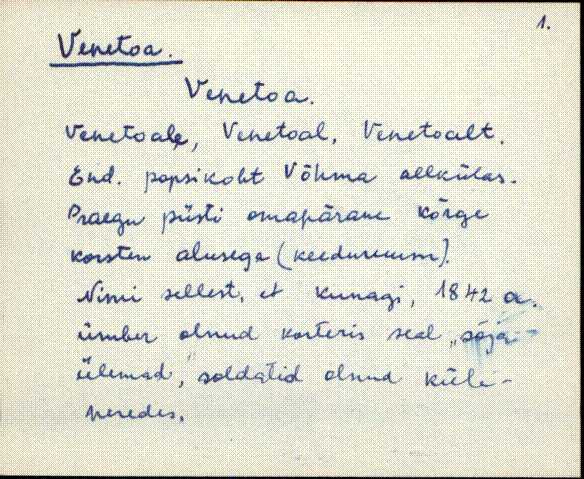 1.
Venetoa.
Venetoa.
Venetoale, Venetoal, Venetoalt.
End. popsikoht Võhma allkülas.
Praegu püsti omapärane kõrge
korsten alusega (keeduruum).
Nimi sellest, et kunagi, 1842 a.
ümber olnud korteris seal „sõja-
ülemad," soldatid olnud küla-
peredes.